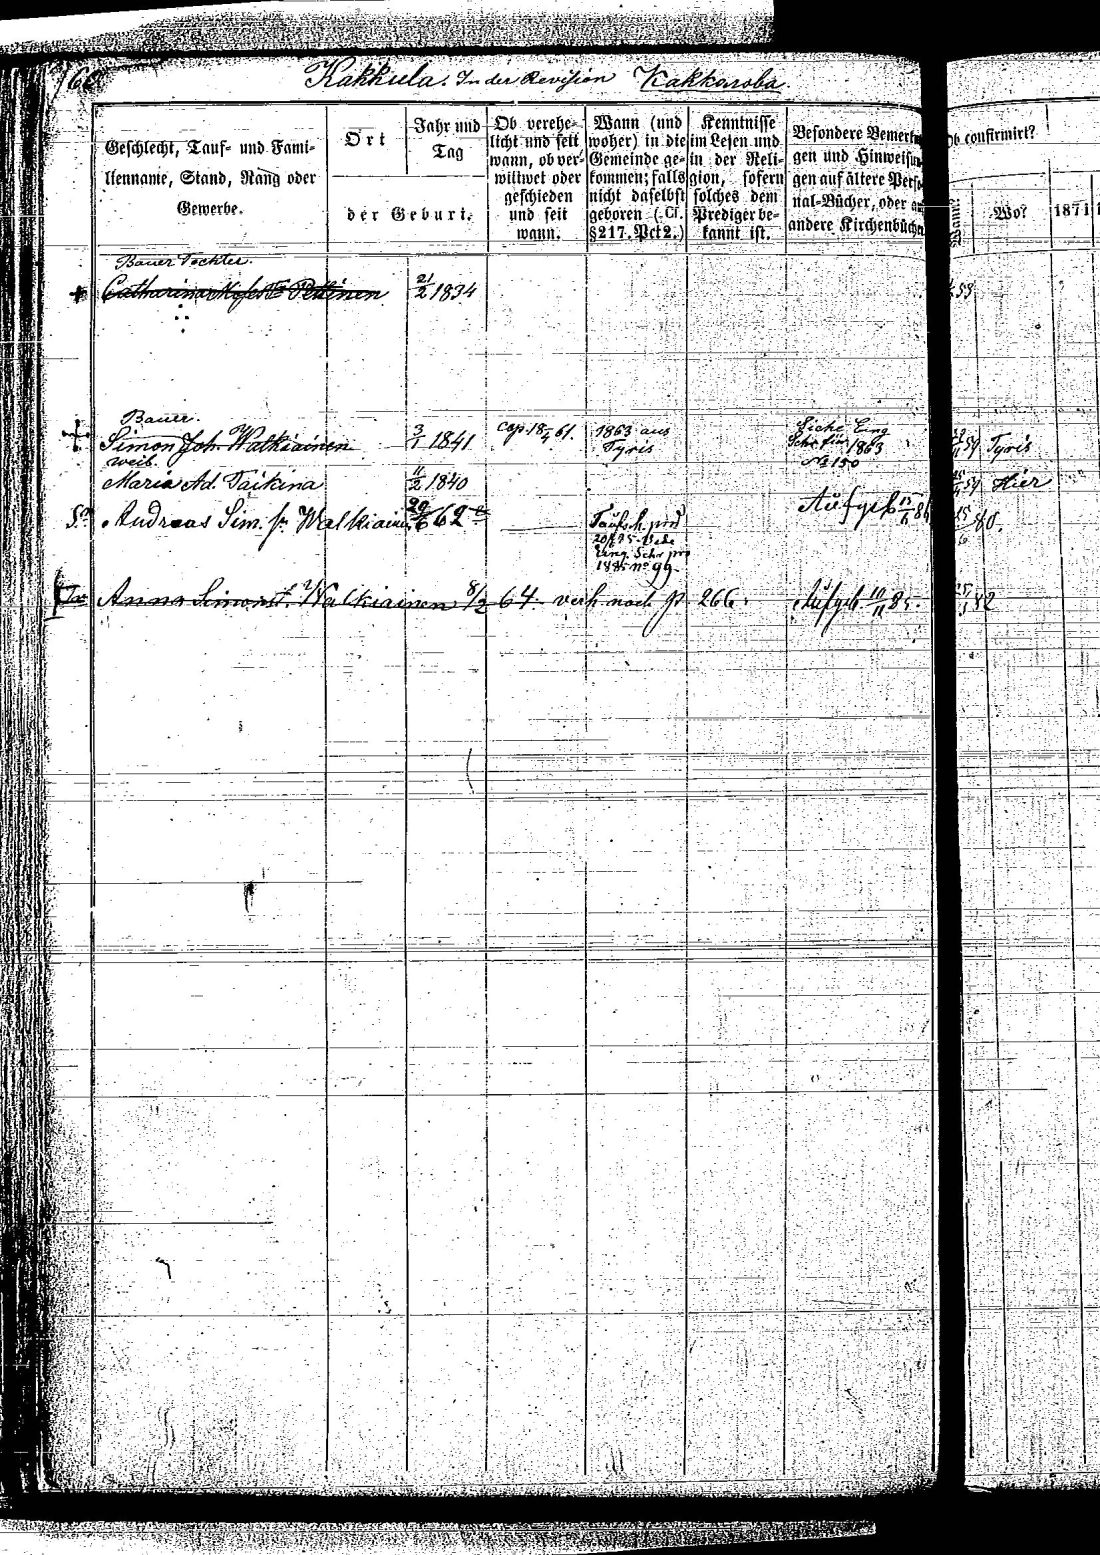 Kakkula. In der Revision Kakkaroba
Geschlecht, Tauf- und Fami-
lienname, Stand, Rang oder
Gewerbe.
Ort
Jahr und
Tag
der Geburt.
Ob verehe-
licht und seit
wann, ob ver-
wittwet oder
geschieden
und seit
wann.
Wann (und
woher) in die
Gemeinde ge-
kommen; falls
nicht daselbst
geboren (Cf.
§ 217. Pct 2.)
Kenntnisse
im Lesen und
in der Reli-
gion, sofern
solches dem
Prediger be-
kannt ist.
Besondere Bemerkun
gen und Hinweisun
gen auf ältere Perso
nal-Bücher, oder
andere Kirchenbüche
Ob confirmirt?
Wann?
Wo?
1871
Bauer Tochter.
Catharina Pettinen 21/2 1834
53
Bauer.
Simon Joh. Walkiainen 3/1 1841 cop. 18/4 61. 1863 aus Tyris
Siehe Eing
Schr für 1863
No 150
Tyris
weib.
Maria Ad. Taikina 11/2 1840
Hier
Andreas Sim. Walkiain 29/6 62
Taufsch. pro
Eing. Schr pro
1885 no 99.
Aufgeb 15/6 86
80.
Anna Simonst. Walkiainen 8/2 64 verh nach p. 266. Aufgeb 10/11 85.
82